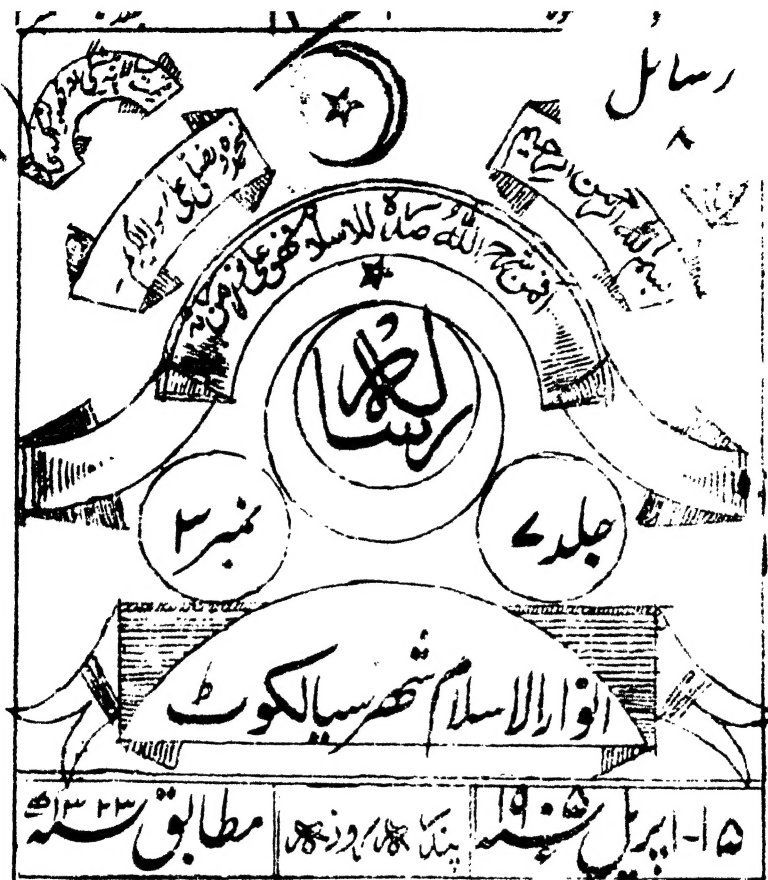 رسائل
۸
بسم اللہ الرحمن الرحیم
نحمدہ ونصلی علی رسولہ الکریم
افمن شرح اللہ صدرہ للاسلام فھو علی نور من ربہ
رسالہ
جلد ۷
نمبر ۳
انوار الاسلام شہر سیالکوٹ
۱۵-اپریل ۱۹۰۵ء
پندرہ روزہ
مطابق ۱۳۲۳ھ